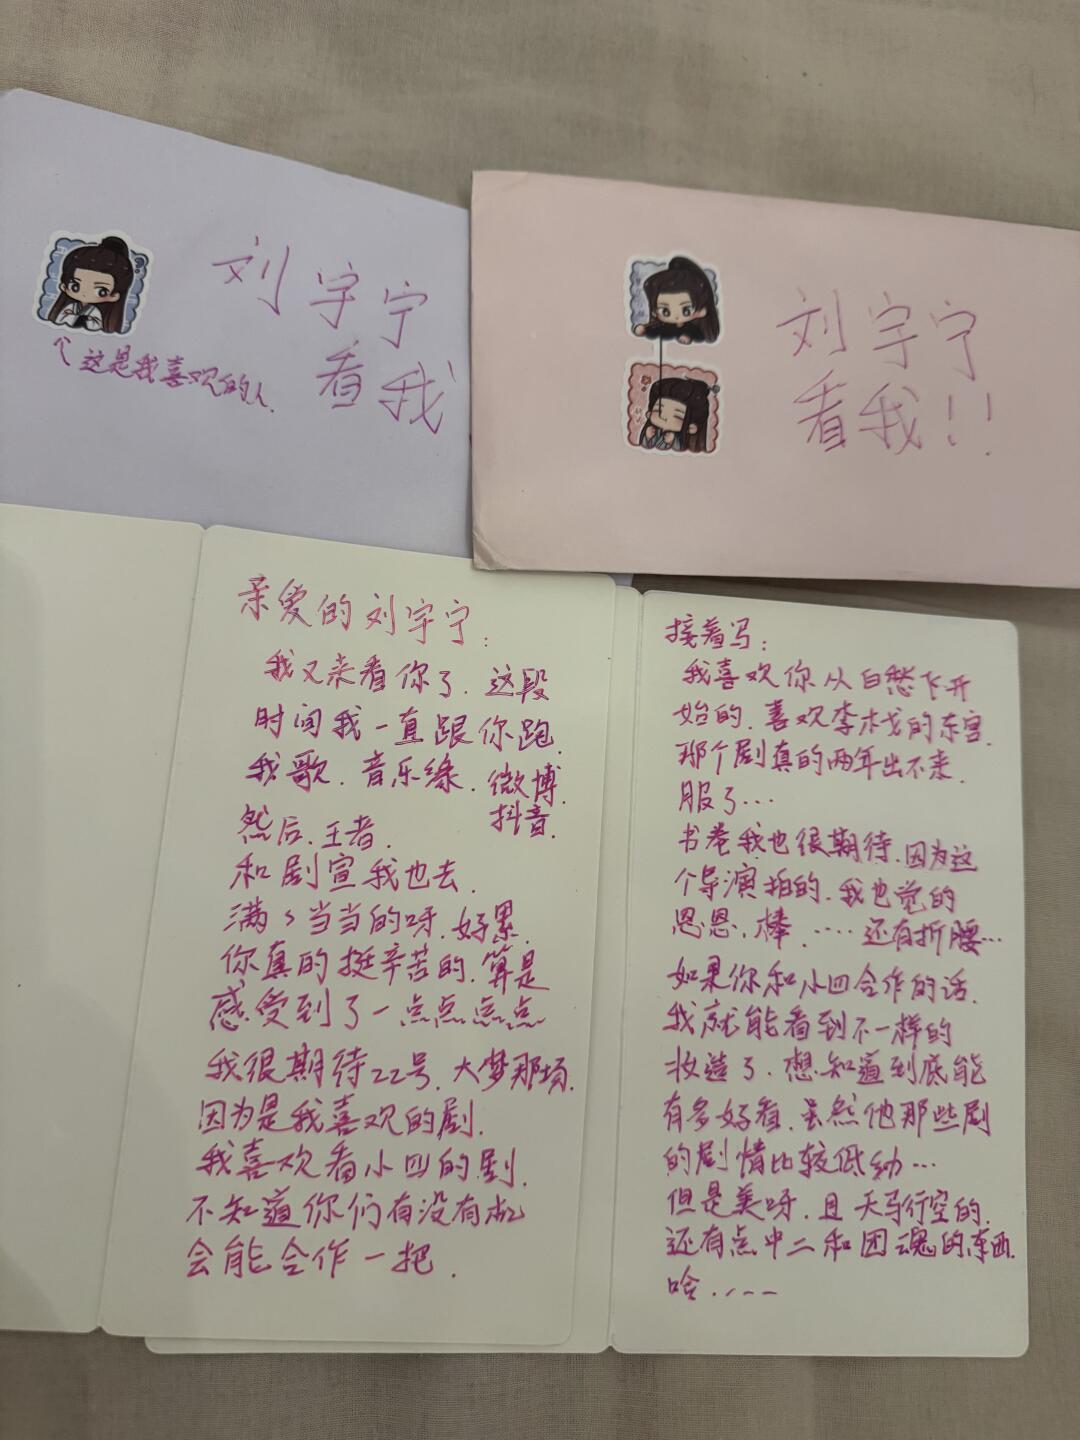 刘宇宁
看我
↑这是我喜欢的人.
刘宇宁
看我!!
亲爱的刘宇宁:
我又来看你了. 这段
时间我一直跟你跑.
我歌. 音乐缘. 微博.
抖音.
然后. 王者.
和剧宣我也去.
满々当当的呀. 好累.
你真的挺辛苦的. 算是
感受到了一点点点点
我很期待22号. 大梦那场.
因为是我喜欢的剧.
我喜欢看小四的剧.
不知道你们有没有机
会能合作一把.
接着写:
我喜欢你从白愁飞开
始的. 喜欢李木戈的东宫.
那个剧真的两年出不来.
服了...
书卷我也很期待. 因为这
个导演拍的. 我也觉的
恩恩. 棒. .... 还有折腰...
如果你和小四合作的话.
我就能看到不一样的
妆造了. 想知道到底能
有多好看. 虽然他那些剧
的剧情比较低幼...
但是美呀. 且天马行空的.
还有点中二和团魂的东西.
哈.....